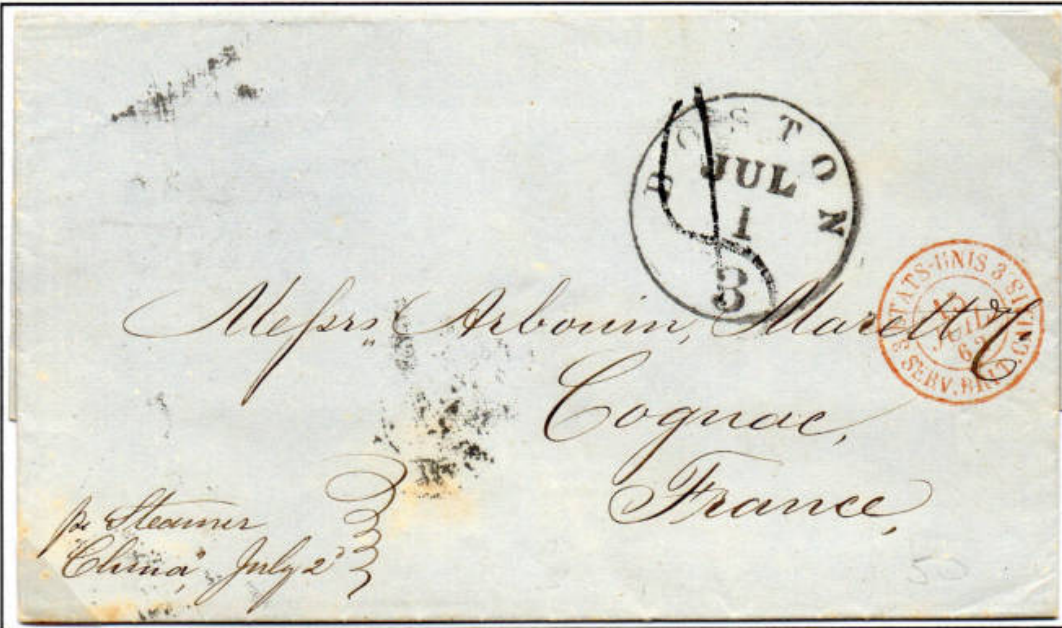 BOSTON
JUL
1
3
ETATS-UNIS 3 SERV. BRIT. CALAIS 3
JUIL.
62
Messrs Arbouin, Marett & C.
Cognac,
France,
pr Steamer
"China", July 2d